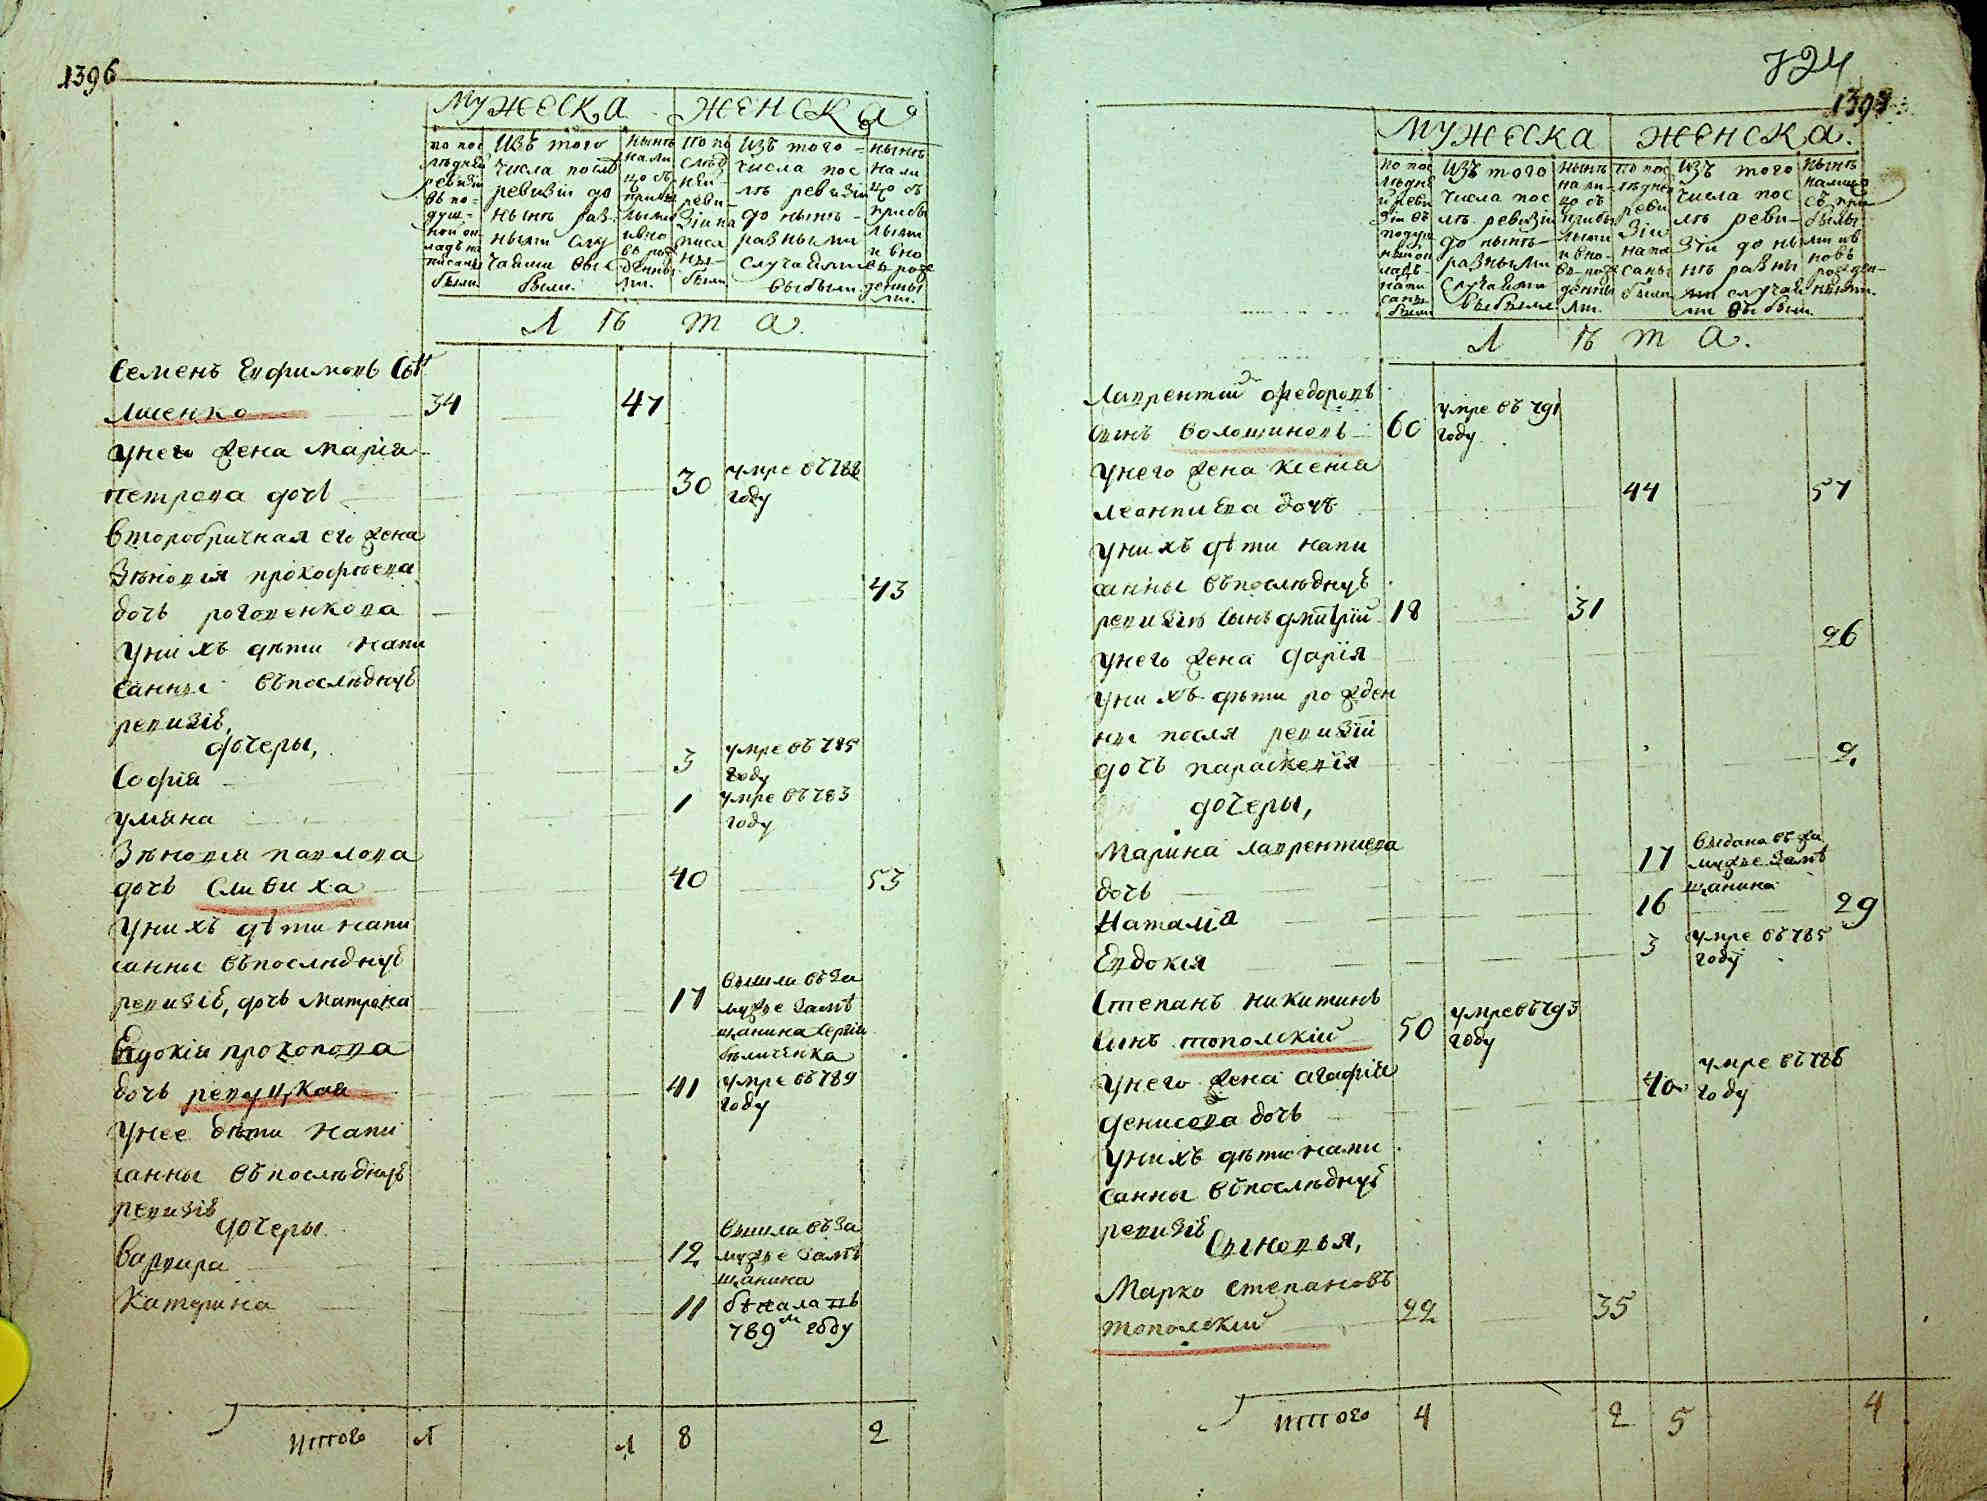 1396
МУЖЕСКА ЖЕНСКА
по пос
лѣдней
ревизіи
въ по-
душ-
ной ок
ладъ на
писаны
были
Изъ того
числа послѣ
ревизіи до
нынѣ раз-
ными слу
чаями вы
были.
нынѣ
нали
цо съ
прибы
лыми
и вно
въ рож
денны
ми.
По по
слѣд
ней
реви-
зіи на
писа
ны
были
Изъ того
числа пос
лѣ ревизіи
до нынѣ
разными
случайми
выбыли.
нынѣ
нали
цо съ
прибы
лыми
и вно
въ рож
денны
ми.
Л Ѣ т а.
Семенъ Ефимовъ Сынъ
34 47
У него жена Марія
Петрова дочь 30 умре въ 788
году
Второбрачная его жена
Зѣновія Прокофьева
дочь роговенкова 43
У нихъ дѣти напи
санны въ послѣднуѣ
ревизіѣ,
дочеры,
Софія 3 умре въ 785
году
Умяна 1 умре въ 783
году
Зѣновія Павлова
дочь Сливиха 40 53
У нихъ дѣти напи
санны въ послѣднуѣ
ревизіѣ, дочь Матрона 17 Вышла въ за
мужье за мѣ
щанина Сергія
бѣличенка
Евдокія Прокопова
дочь ревуцкая 41 умре въ 789
году
У нее дѣти напи
санны въ послѣднуѣ
ревизіѣ
дочеры
Варвара 12 Вышла въ за
мужье за мѣ
щанина
Катерина 11 бѣжала въ
789м году
Итого 1 1 8 2
724
1397
МУЖЕСКА ЖЕНСКА.
по пос
лѣдне
й реви
зіи въ
подуш
ной ок
ладъ
напи
саны
были
Изъ того
числа пос
лѣ ревизіи
до нынѣ
разными
случайми
выбыли
нынѣ
нали-
цо съ
прибы
лыми
и вно-
въ рож
денны
ми.
По пос
лѣдне
реви
зіи
напи
саны
были
Изъ того
числа пос
лѣ реви-
зіи до ны
нѣ разны
ми случай
ми выбыли.
нынѣ
налицо
съ при
былы
ми и в
новѣ
рожден-
ными.
Л Ѣ т а.
Лаврентій Федоровъ
сынъ Волошиновъ 60 умре въ 791
году
У него жена Ксенія
Леонтиева дочь 44 57
У нихъ дѣти напи
санны въ послѣднуѣ
ревизіѣ сынъ Дмитрій 18 31
У него жена Дарія 26
У нихъ дѣти рожден
ны после ревизіи
дочь Параскевія 2.
дочеры,
Марина Лаврентиева
дочь 17 Выдана въ за
мужье за мѣ
щанина
Наталіа 16 29
Евдокія 3 умре въ 785
году
Степанъ Никитинъ
сынъ Топольскій 50 умре въ 793
году
У него жена Агафія
Денисова дочь 40 умре въ 786
году
У нихъ дѣти напи
санны въ послѣднуѣ
ревизіѣ
Сыновья,
Марко Степановъ
Топольскій 22 35
Итого 4 2 5 4